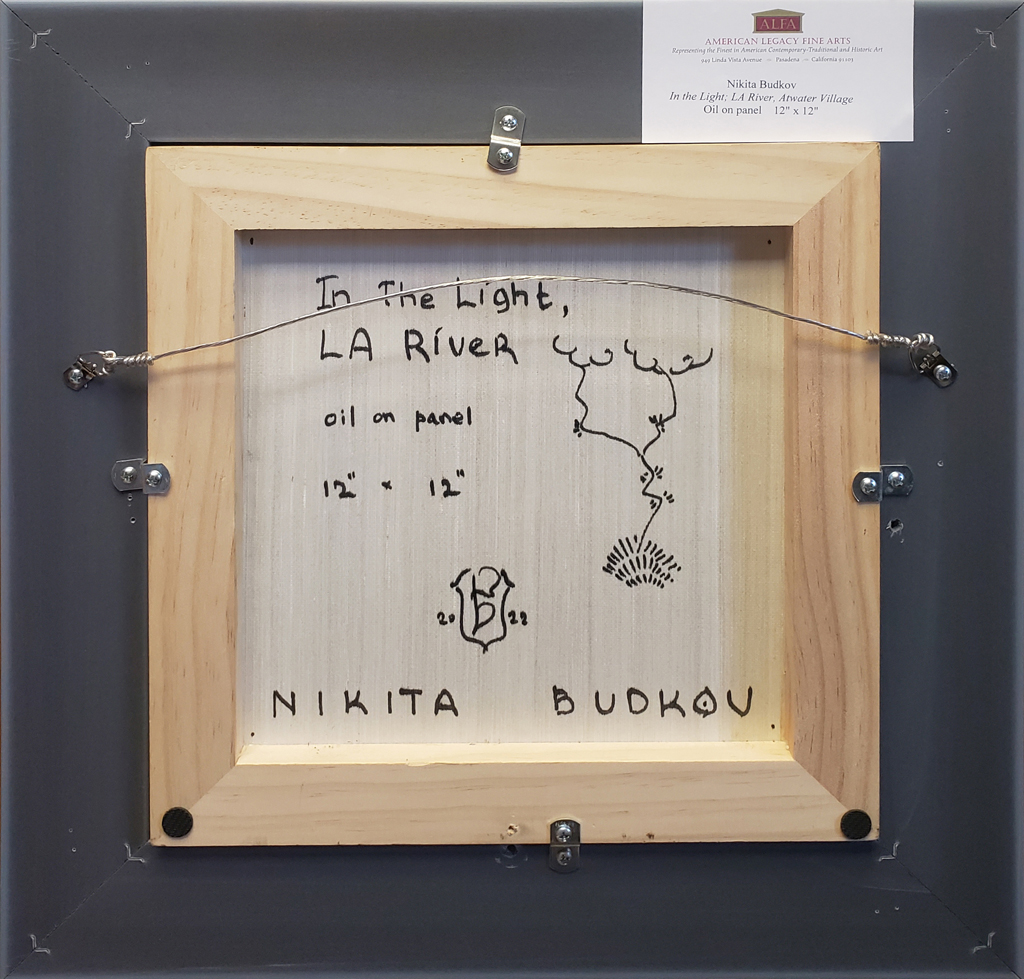 ALFA
AMERICAN LEGACY FINE ARTS
Representing the Finest in American Contemporary-Traditional and Historic Art
949 Linda Vista Avenue — Pasadena — California 91103
Nikita Budkov
In the Light; LA River, Atwater Village
Oil on panel 12" x 12"
In The Light,
LA RiveR
oil on panel
12" × 12"
B
20 22
NIKITA BUDKOV